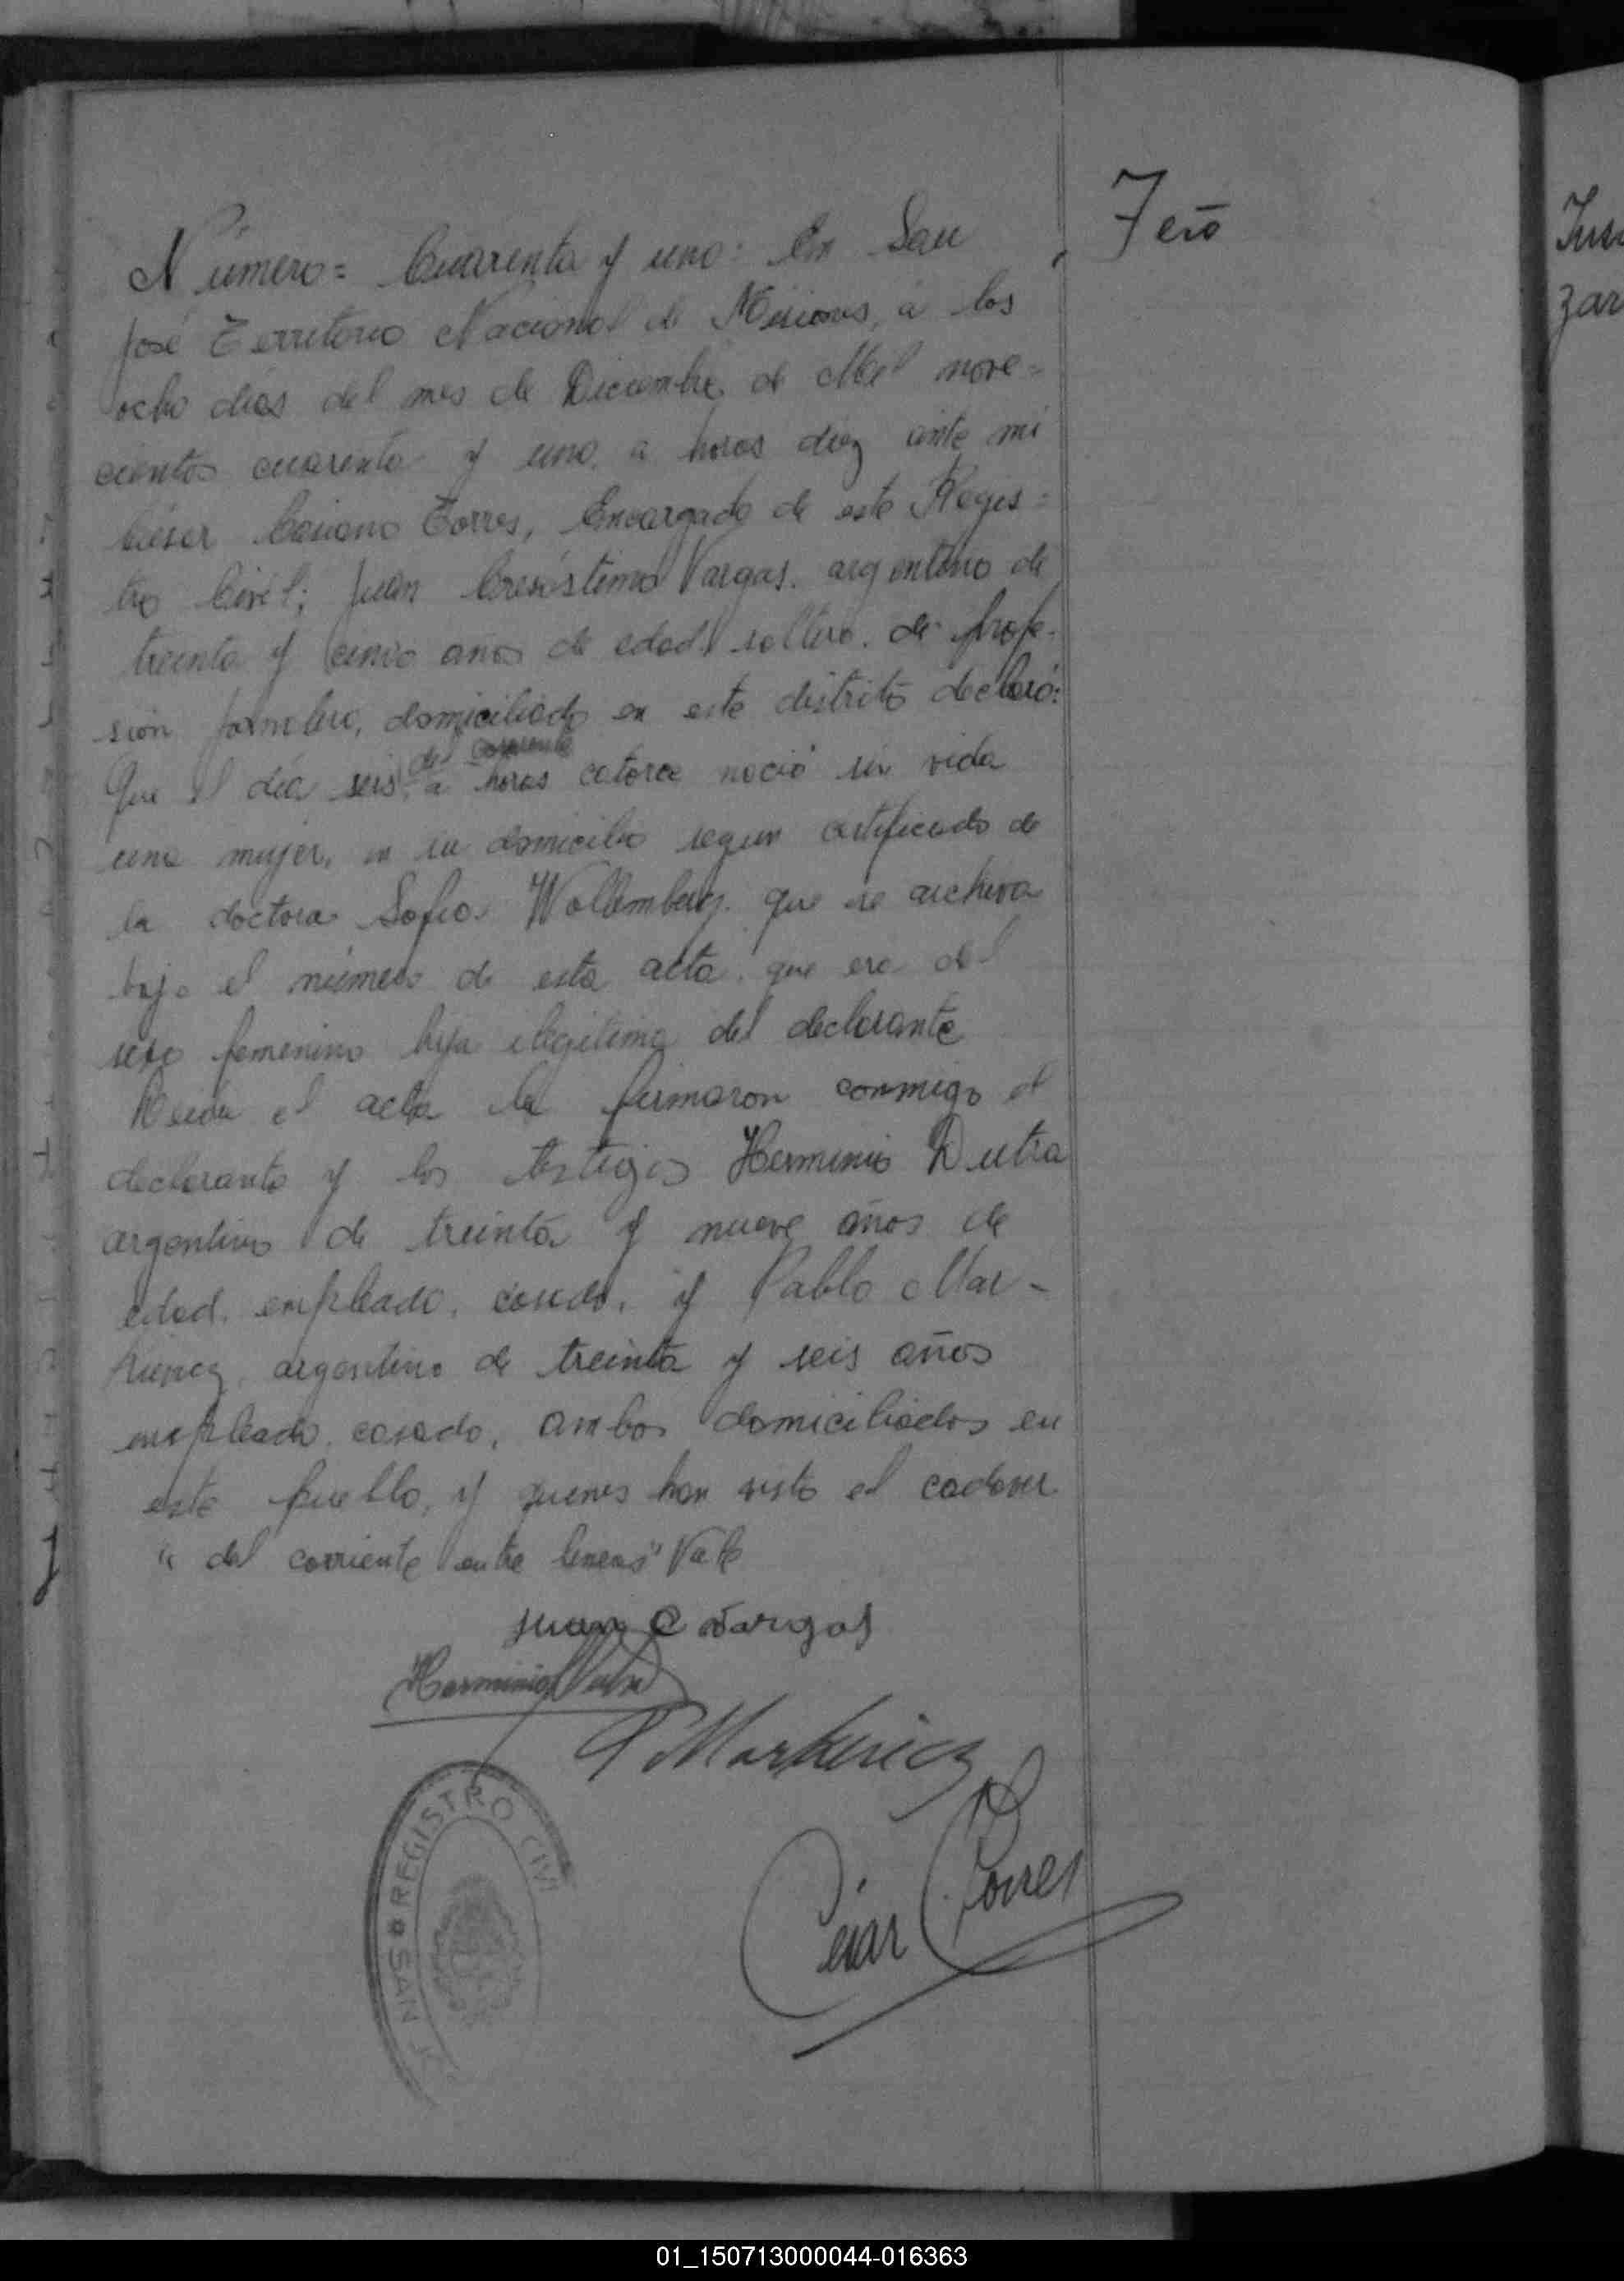 Número = Cuarenta y uno: En San
José Territorio Nacional de Misiones, a los
ocho días del mes de Diciembre de Mil nove=
cientos cuarenta y uno, a horas diez ante mi
César Casiano Torres, Encargado de este Regis=
tro Civil; Juan Crisóstimo Vargas, argentino de
treinta y cinco años de edad, soltero, de profe-
sión jornlero, domiciliado en este distrito declaró:
del corriente
Que el día seis, a horas catorce nació sin vida
una mujer, en su domicilio segun certificado de
la doctora Sofia Wollemberg, que se archiva
bajo el número de esta acta, que era del
sexo femenino hija ilegítima del declarante
Leída el acta la firmaron conmigo el
declarante y los testigos Herminio Dutra
argentino de treinta y nueve años de
edad, empleado, casado, y Pablo Mar-
kiewicz, argentino de treinta y seis años
empleado, casado, ambos domiciliados en
este pueblo, y quienes han visto el cadaver
"del corriente entre lineas" Vale
Juan C Vargas
Herminio Dutra
P Markievicz
César C Torres
REGISTRO CIVI
SAN J
Feto
Jus
zar
01_150713000044-016363